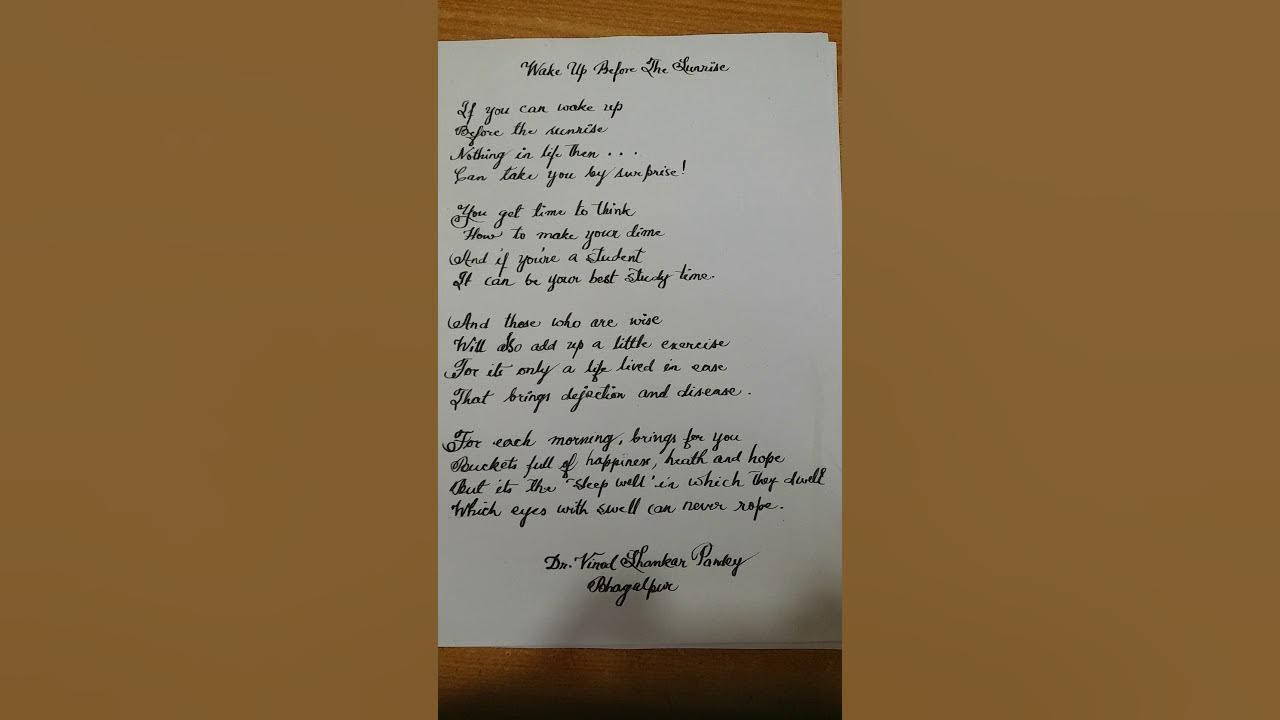 Wake Up Before The Sunrise
If you can wake up
Before the sunrise
Nothing in life then . . .
Can take you by surprise!
You get time to think
How to make your dime
And if you're a student
It can be your best study time.
And those who are wise
Will also add up a little exercise
For its only a life lived in ease
That brings dejection and disease.
For each morning, brings for you
Buckets full of happiness, heath and hope
But its the 'sleep well' in which they dwell
Which eyes with swell can never rope.
Dr. Vinod Shankar Pandey
Bhagalpur